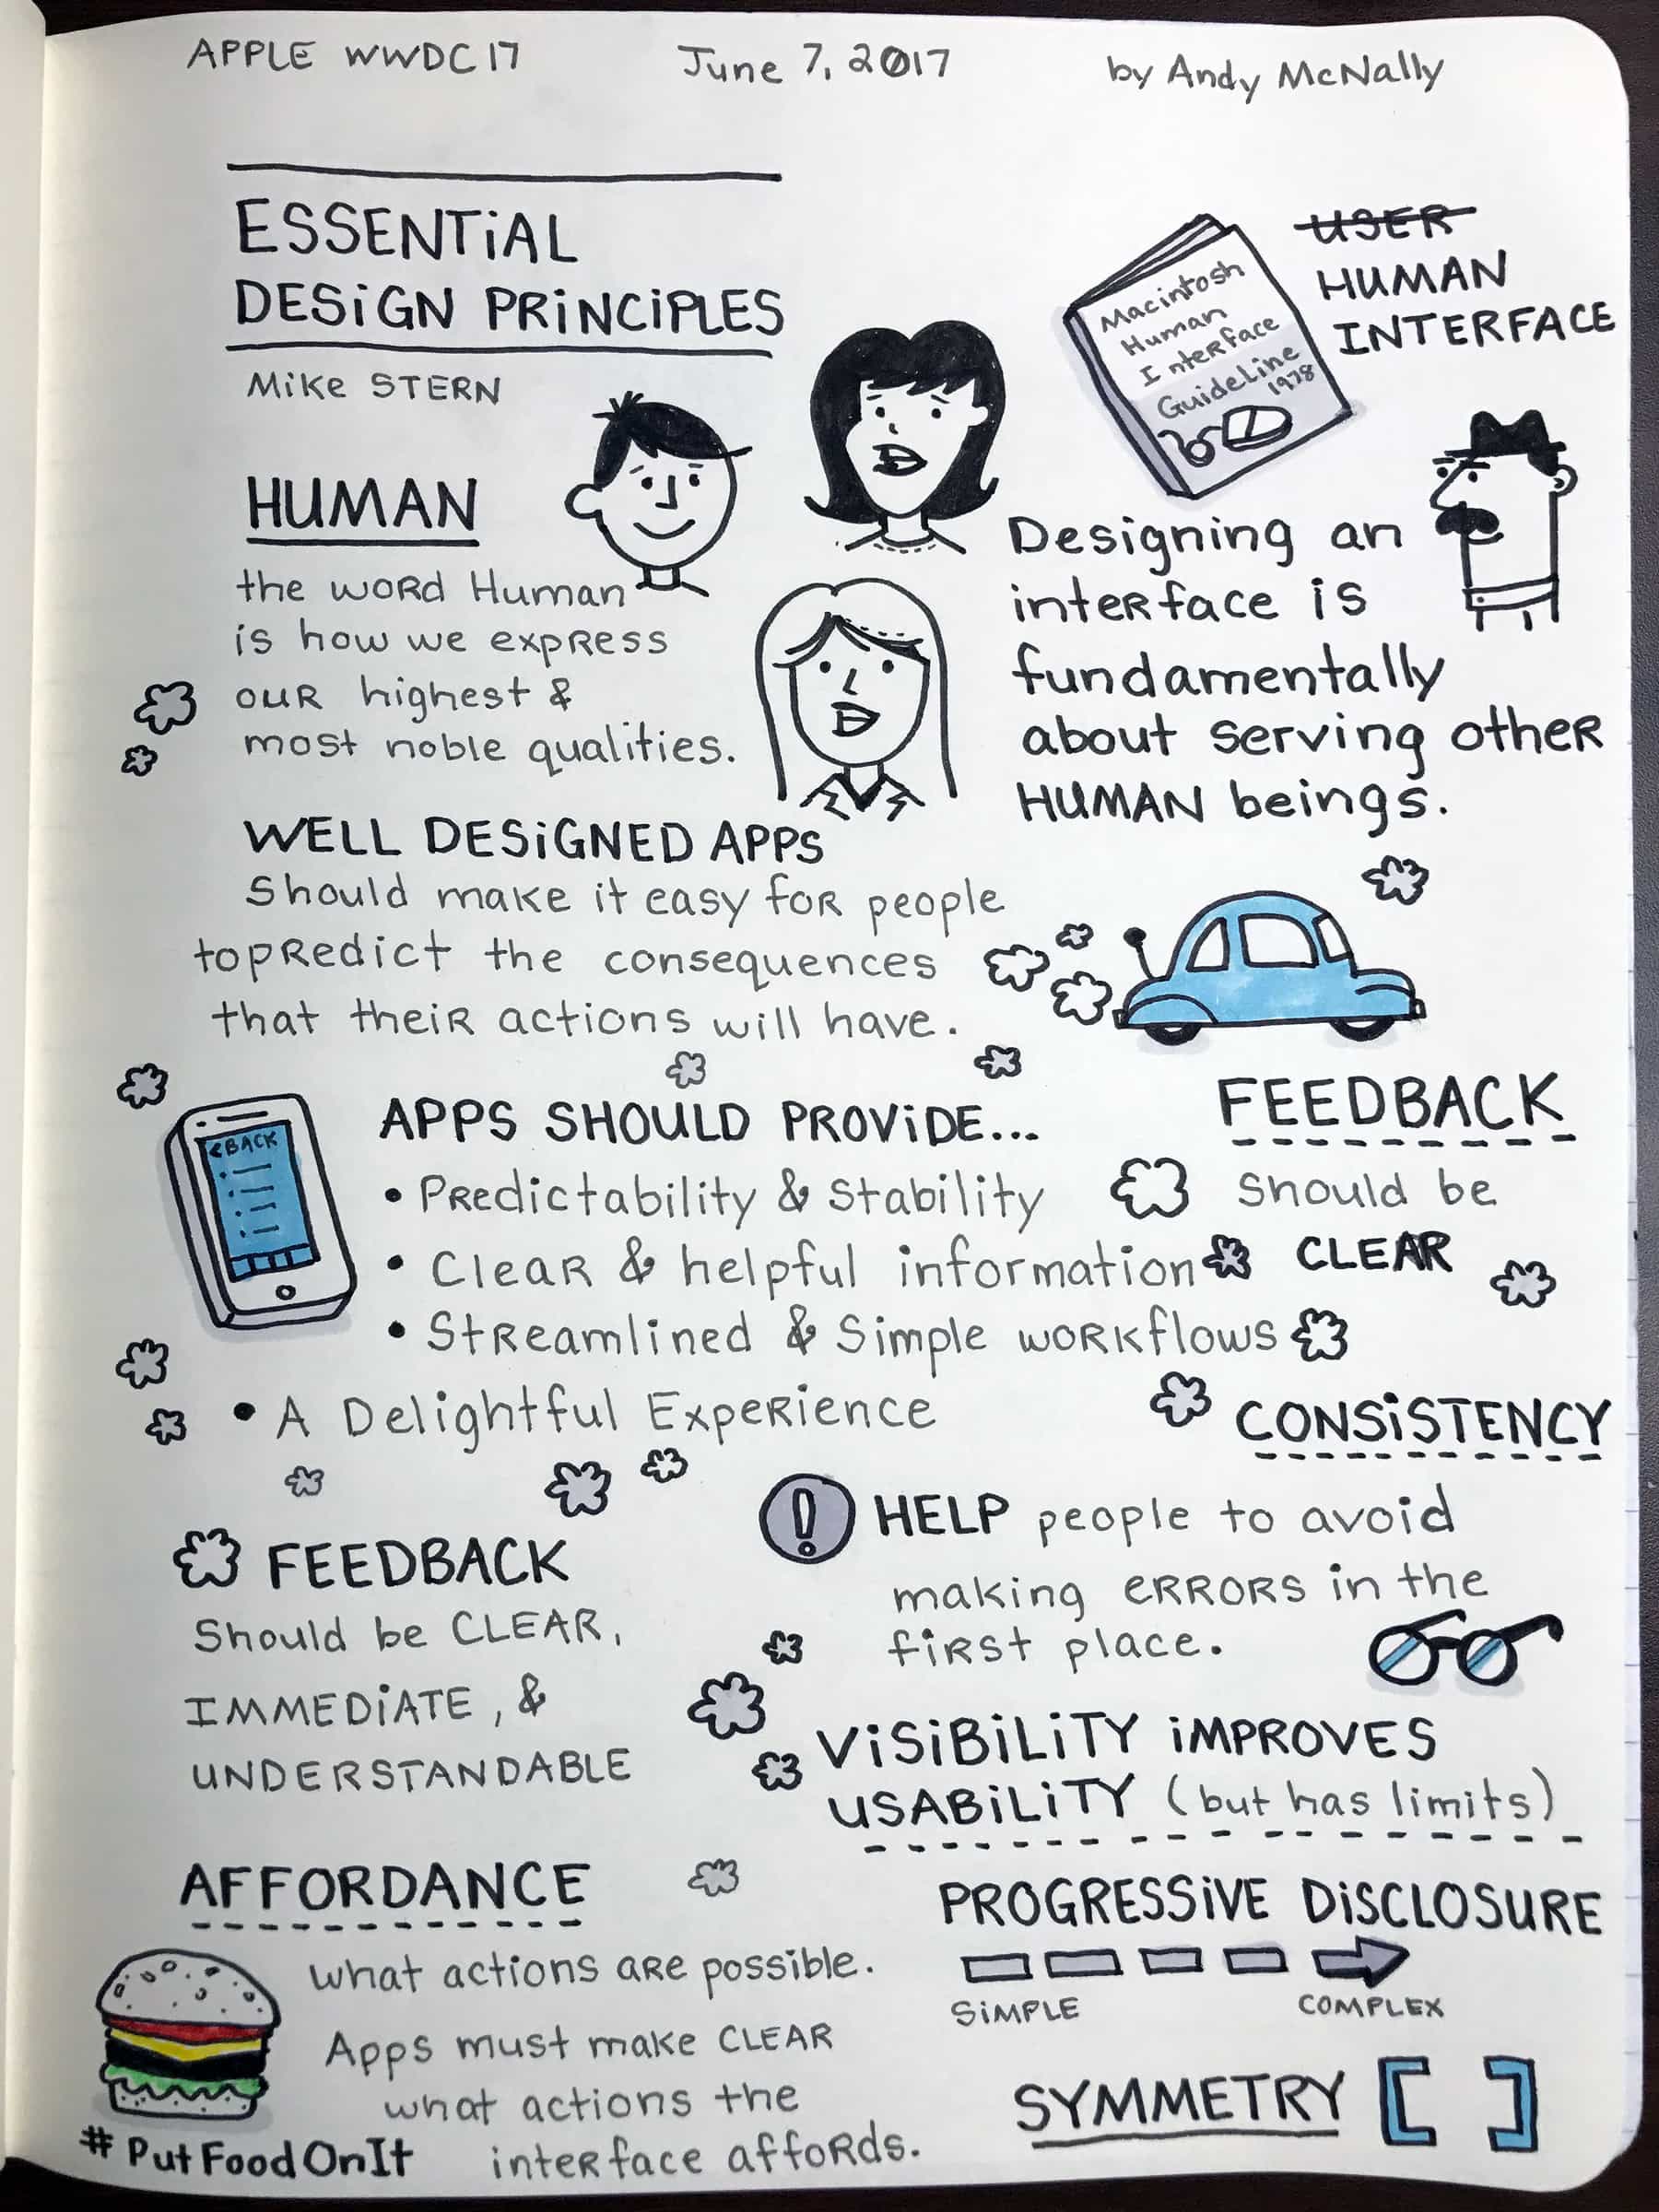 APPLE WWDC17 June 7, 2017 by Andy McNally
ESSENTiAL
DESiGN PRiNCiPLES
MiKe STERN
USER
HUMAN
INTERFACE
Macintosh
Human
InteRface
GuideLine
1978
HUMAN
the woRd Human
is how we expRess
ouR highest &
most noble qualities.
Designing an
inteRface is
fundamentally
about serving otheR
HUMAN beings.
WELL DESiGNED APPS
Should make it easy foR people
topRedict the consequences
that theiR actions will have.
<BACK
APPS SHOULD PROViDE...
• PRedictability & Stability
• CleaR & helpful information
• StReamlined & Simple woRKflows
• A Delightful ExpeRience
FEEDBACK
Should be
CLEAR
CONSiSTENCY
! HELP people to avoid
making eRRORS in the
fiRst place.
FEEDBACK
Should be CLEAR,
IMMEDiATE, &
UNDERSTANDABLE
ViSiBiLiTY iMPROVES
USABiLiTY (but has limits)
AFFORDANCE
what actions aRe possible.
Apps must make CLEAR
what actions the
inteRface affoRds.
#PutFoodOnIt
PROGRESSiVE DiSCLOSURE
SiMPLE COMPLEX
SYMMETRY [ ]